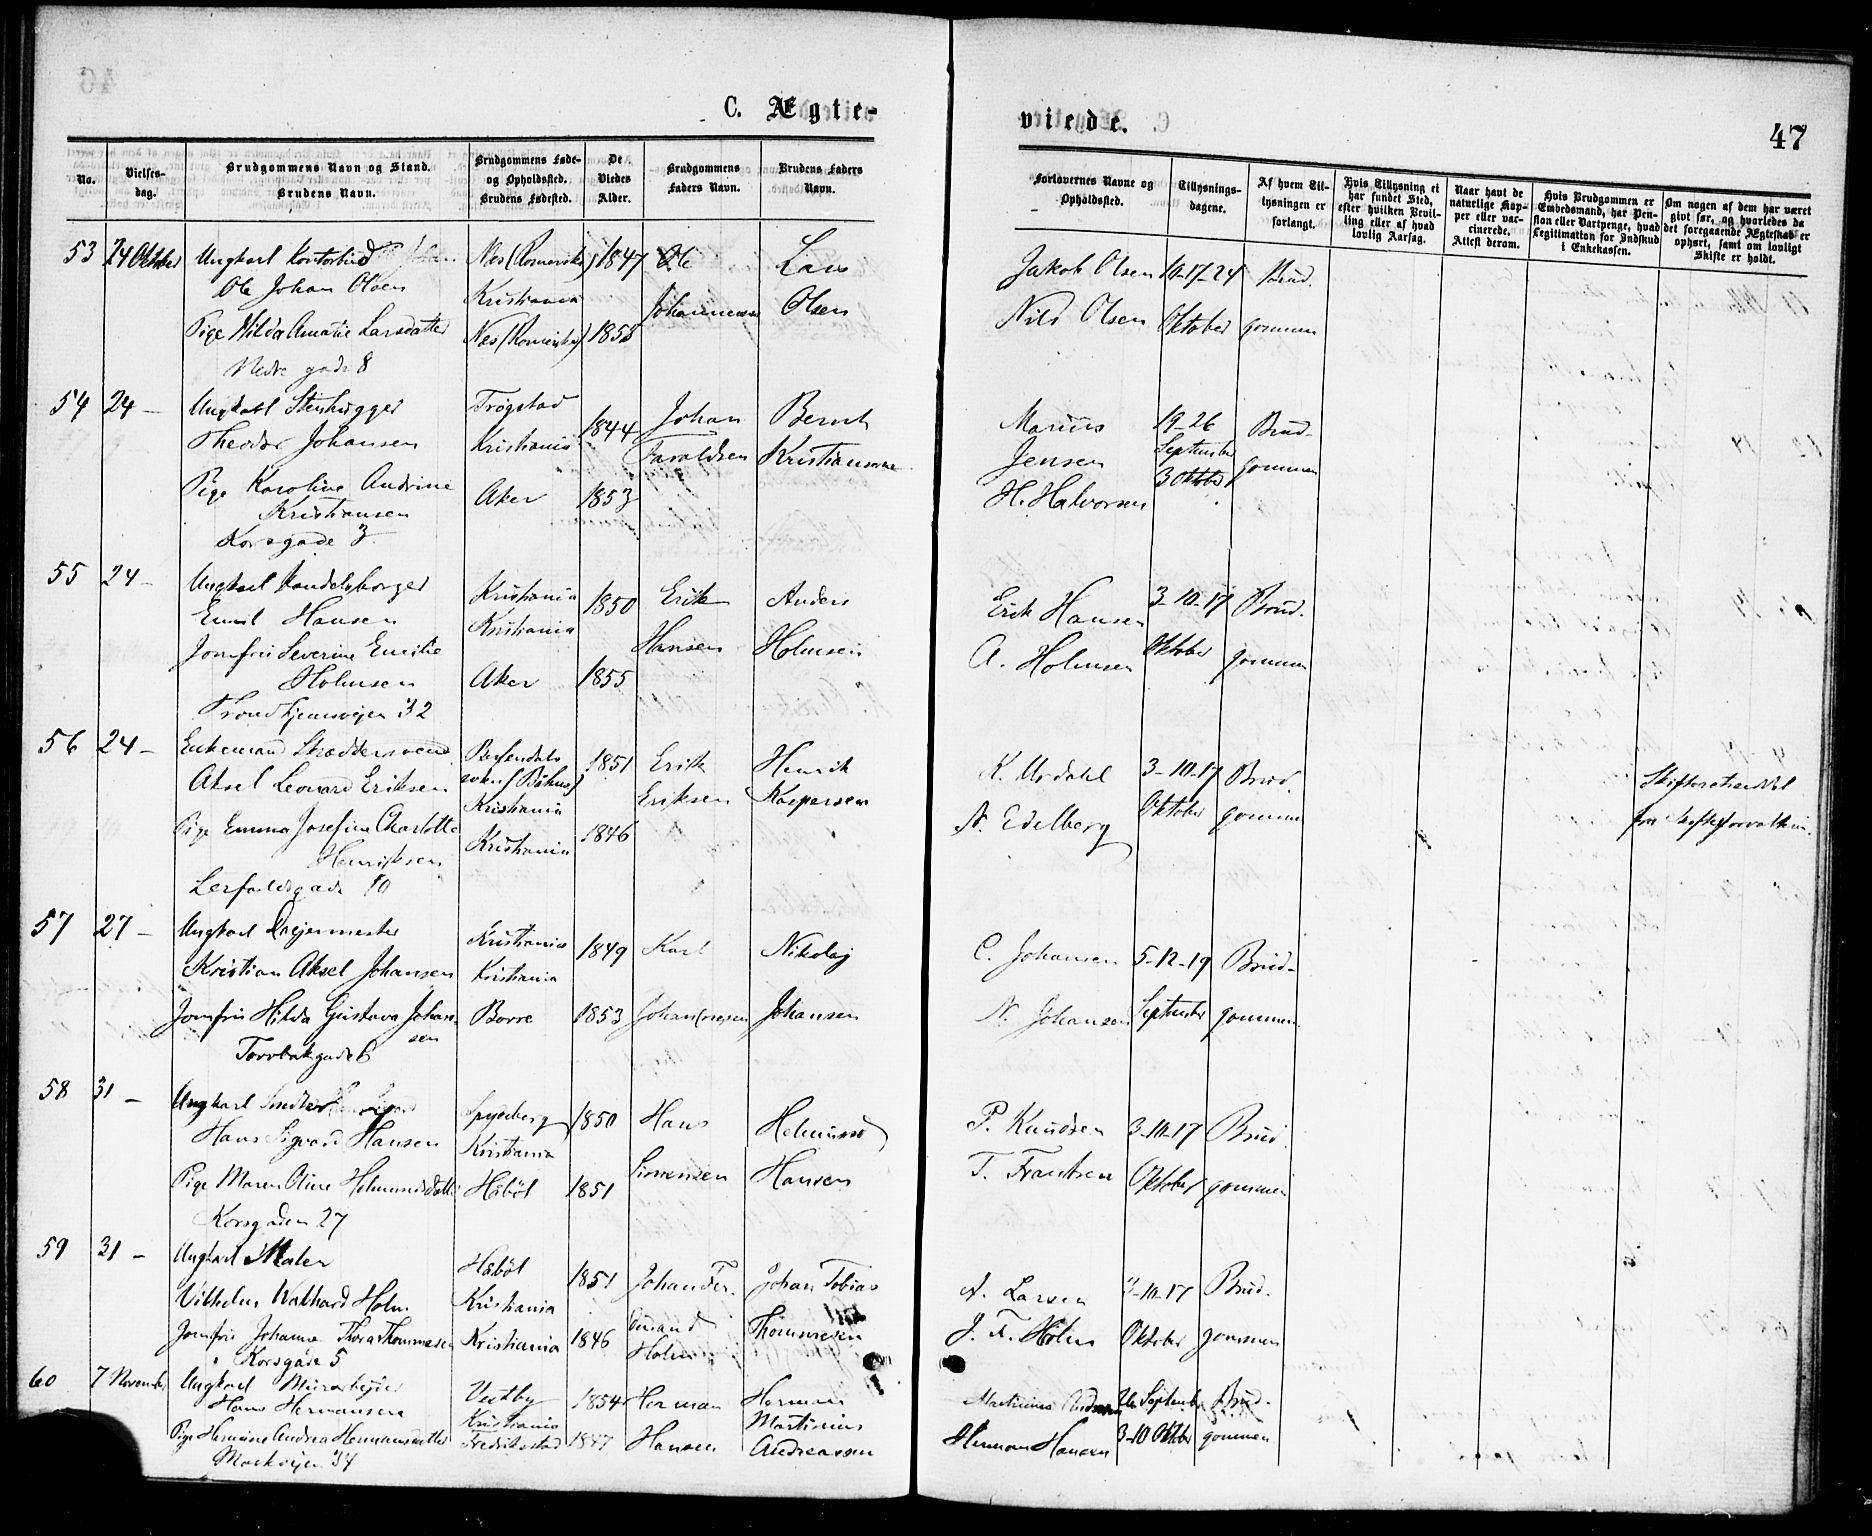 C. Ægte-
viede.
47
No.
Vielses-
dag.
Brudgommens Navn og Stand.
Brudens Navn.
Brudgommens Føde-
og Opholdssted.
Brudens Fødested.
De
Viedes
Alder.
Brudgommens
Faders Navn.
Brudens Faders
Navn.
Forlovernes Navne og
Opholdssted.
Tillysnings-
dagene.
Af hvem Til-
lysningen er
forlangt.
Hvis Tillysning ei
har fundet Sted,
efter hvilken Bevil-
ling eller af hvad
lovlig Aarsag.
Naar havt de
naturlige Kop-
per eller vac-
cinerede.
Attest derom.
Hvis Brudgommen er
Embedsmand, har Pen-
sion eller Vartpenge, hvad
Legitimation for Indskud
i Enkekassen.
Om nogen af dem har været
gift før, og hvorledes da
det foregaaende Ægteskab er
ophørt, samt om lovligt
Skifte er holdt.
53 24 Oktober Ungkarl Kontorbud
Ole Johan Olsen
Pige Hilda Amalie Larsdatter
Nedre gade 8
Nes (Romerike)
Kristiania
Nes (Romerike)
1847
1853
Ole
Johannessen
Lars
Olsen
Jakob Olsen
Nils Olsen
10-17-24
Oktober
Brud-
gommen
54 24 - Ungkarl Stenhugger
Theodor Johansen
Pige Karoline Andrine
Kristiansen
Korsgade 3
Trøgstad
Kristiania
Aker
1844
1853
Johan
Taraldsen
Bernt
Kristiansen
Marius
Jensen
H. Halvorsen
19-26
September
3 Oktober
Brud-
gommen
55 24 - Ungkarl Handelsborger
Emil Hansen
Jomfru Severine Emilie
Holmsen
Trondhjemsvejen 32
Kristiania
Kristiania
Aker
1850
1855
Erik
Hansen
Anders
Holmsen
Erik Hansen
A. Holmsen
3-10-17
Oktober
Brud-
gommen
56 24 - Enkemand Skræddersvend
Aksel Leonard Eriksen
Pige Emma Josefine Charlotte
Henriksen
Lerfaldsgade 10
Kristiania
Kristiania
1851
1846
Erik
Eriksen
Henrik
Kaspersen
K. Urdahl
A. Edelberg
3-10-17
Oktober
Brud-
gommen
fra Skifteforvaltn.
57 27 - Ungkarl Drejermester
Kristian Aksel Johansen
Jomfru Hilda Gustava Johan-
sen
Torvbakgade 6
Kristiania
Kristiania
Borre
1849
1853
Karl
Johan(nes)sen
Nikolaj
Johansen
C. Johansen
N. Johansen
5-12-19
September
Brud-
gommen
58 31 - Ungkarl Snedker
Hans Sigvard Hansen
Pige Maren Oline Helmundsdatter
Korsgaden 27
Spydeberg
Kristiania
Håbøl
1850
1851
Hans
Simensen
Helmund
Hansen
P. Knudsen
T. Frantsen
3-10-17
Oktober
Brud-
gommen
59 31 - Ungkarl Maler
Vilhelm Valhard Holm
Jomfru Johanne Thora Thommesen
Korsgade 5
Håbøl
Kristiania
Kristiania
1851
1846
Johan Fer-
dinand
Holm
Johan Tobias
Thommesen
A. Larsen
J. F. Holm
3-10-17
Oktober
Brud-
gommen
60 7 November Ungkarl Murarbejder
Hans Hermansen
Pige Hermine Andrea Hermansdatter
Markvejen 34
Vestby
Kristiania
Fredrikstad
1854
1847
Herman
Hansen
Herman
Martinius
Andreassen
Martinius Andersen
Herman Hansen
26 September
3-10 Oktober
Brud-
gommen